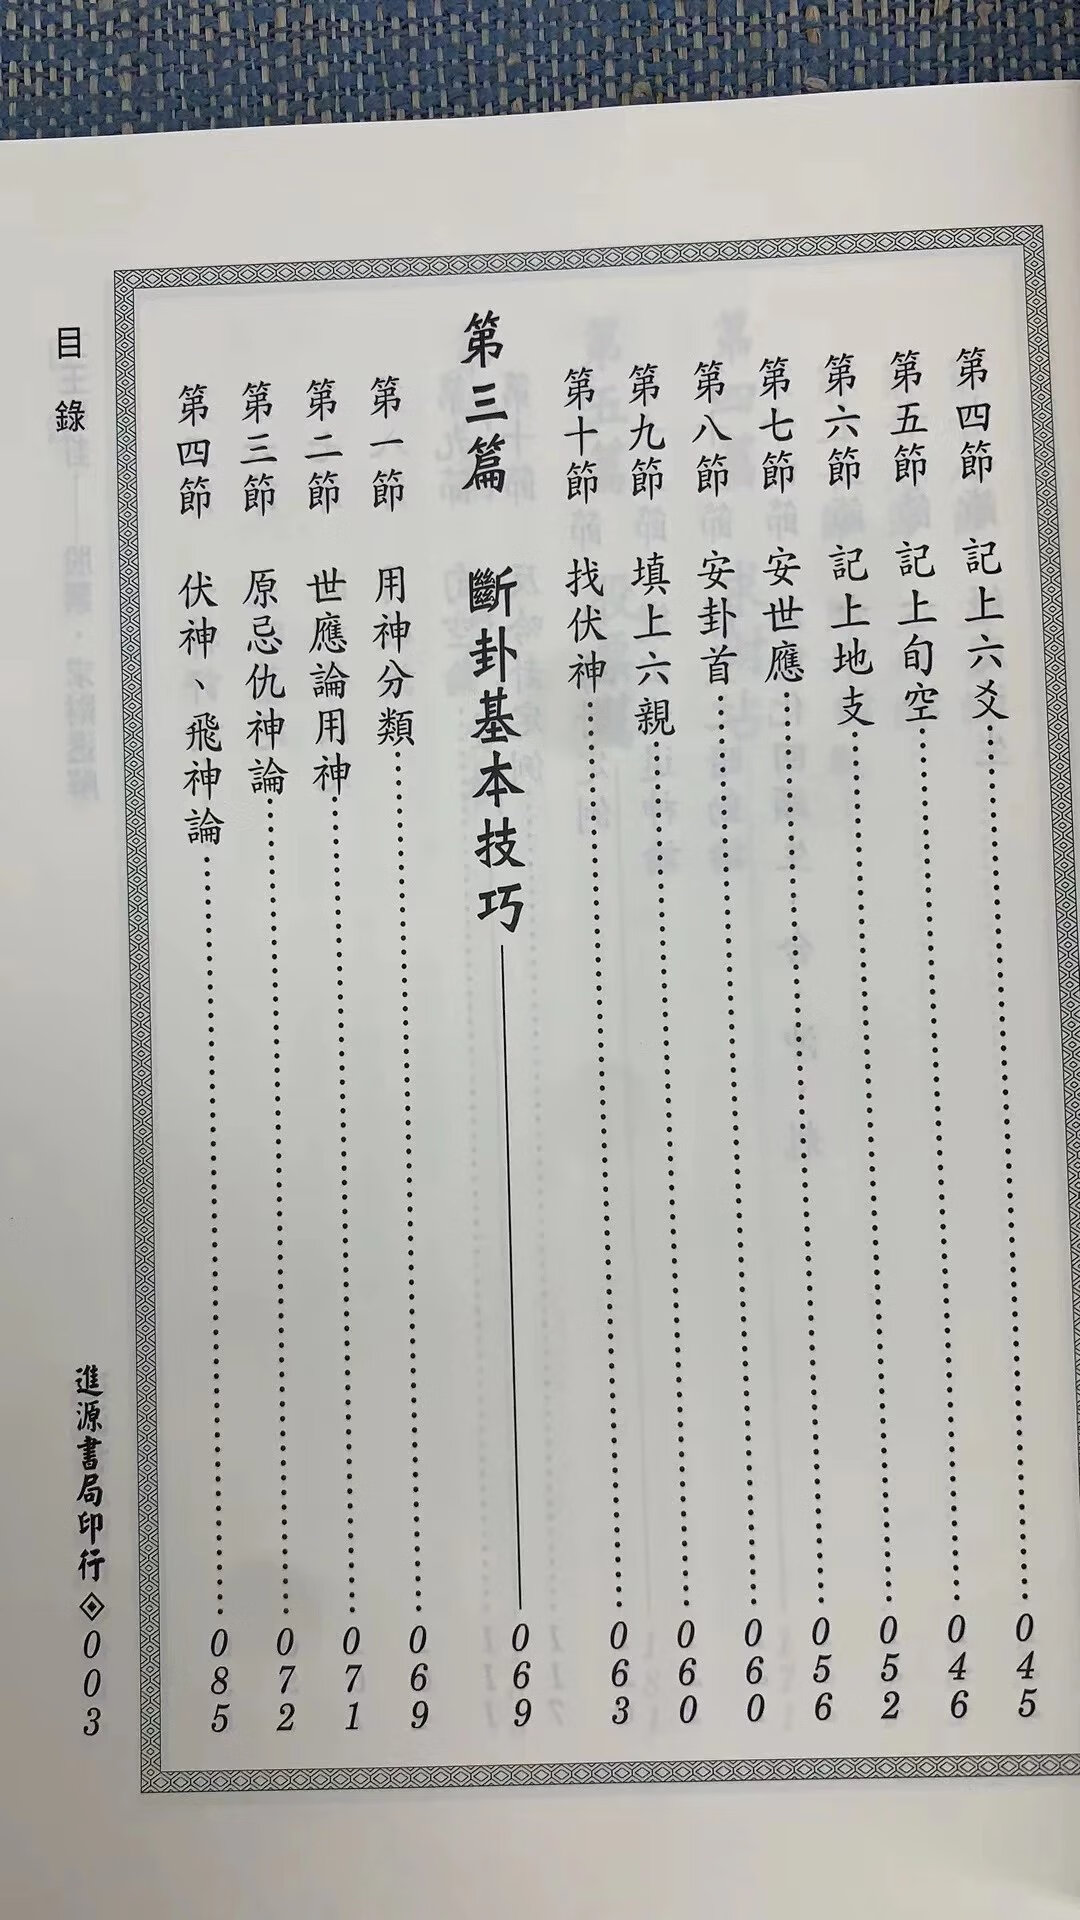 第四節 記上六爻 045
第五節 記上旬空 046
第六節 記上地支 052
第七節 安世應 056
第八節 安卦首 060
第九節 填上六親 060
第十節 找伏神 063
第三篇 斷卦基本技巧 069
第一節 用神分類 069
第二節 世應論用神 071
第三節 原忌仇神論 072
第四節 伏神、飛神論 085
目錄
進源書局印行 003